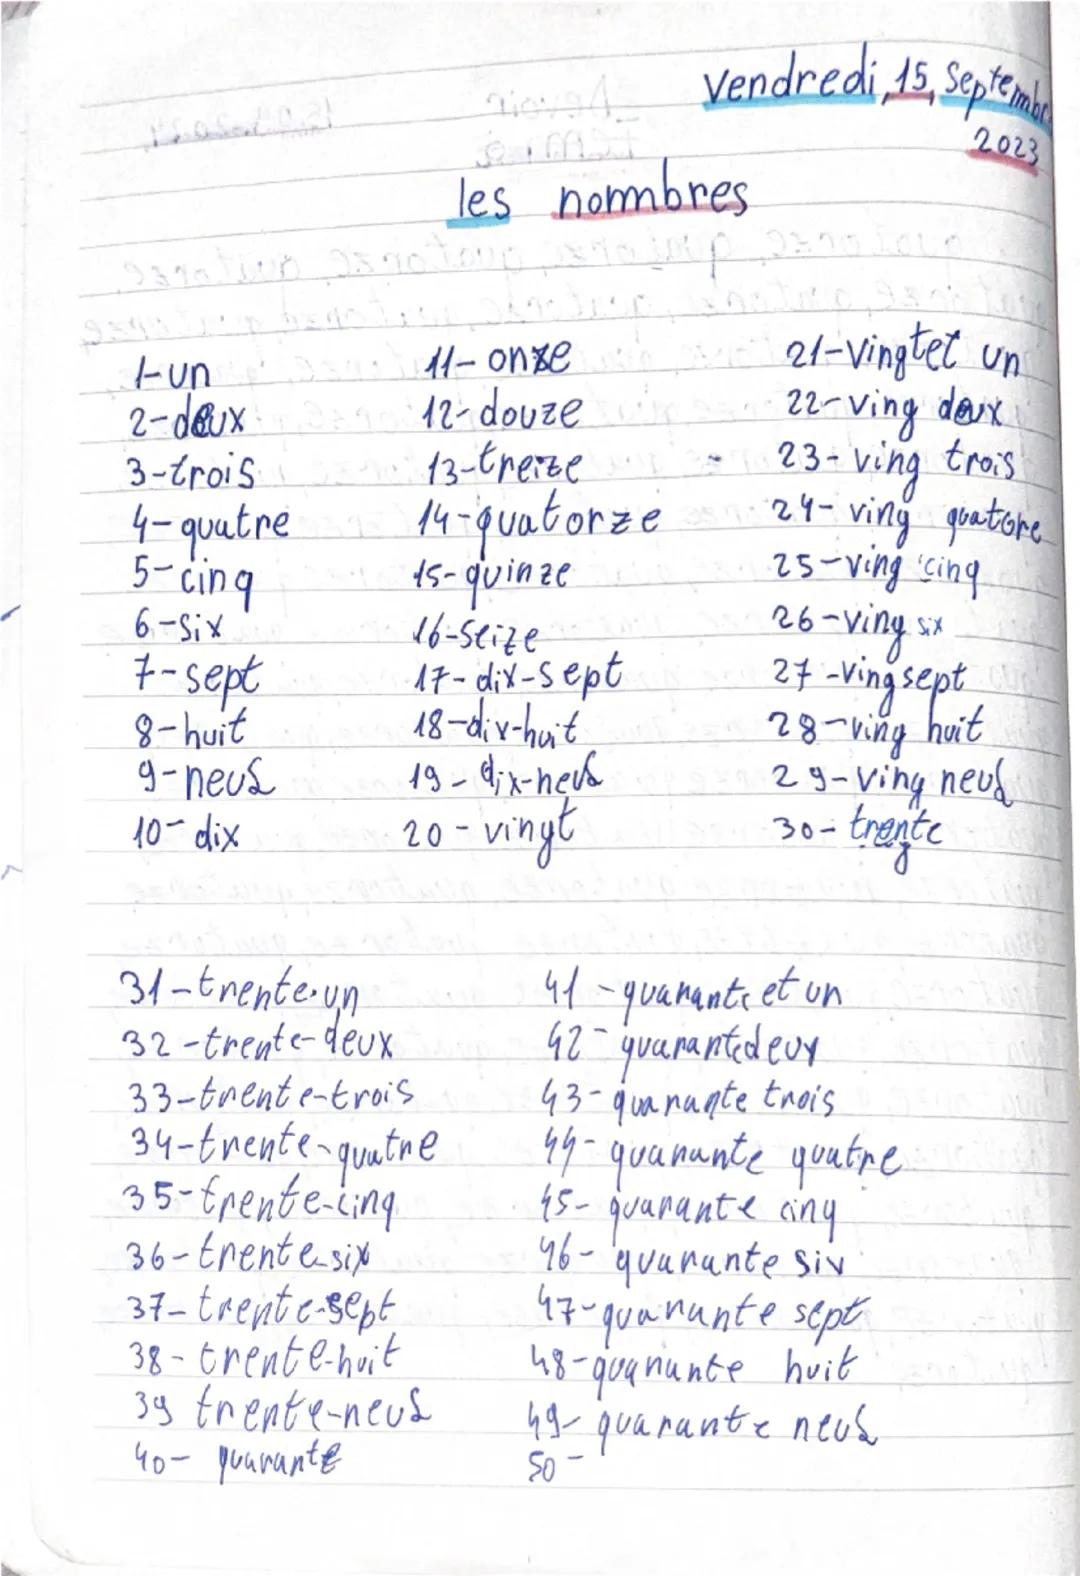 vendredi, 15, Septembre
2023
les nommbres
1-un
2-deux
3-trois
4-quatre
5-cinq
6-six
7-sept
8-huit
9-neuf
10-dix
11-onze
12-douze
13-treize
14-quatorze
15-quinze
16-seize
17-dix-sept
18-dix-huit
19-dix-neuf
20-vingt
21-vingtet un
22-ving deux
23-ving trois
24-ving quatore
25-ving cinq
26-ving six
27-ving sept
28-ving huit
29-ving neuf
30-trente
31-trente-un
32-trente-deux
33-trente-trois
34-trente-quatre
35-trente-cinq
36-trente-six
37-trente-sept
38-trente-huit
39 trente-neuf
40-quarante
41-quarante et un
42-quarante deux
43-quarante trois
44-quarante quatre
45-quarante cinq
46-quarante six
47-quarante sept
48-quarante huit
49-quarante neuf
50-